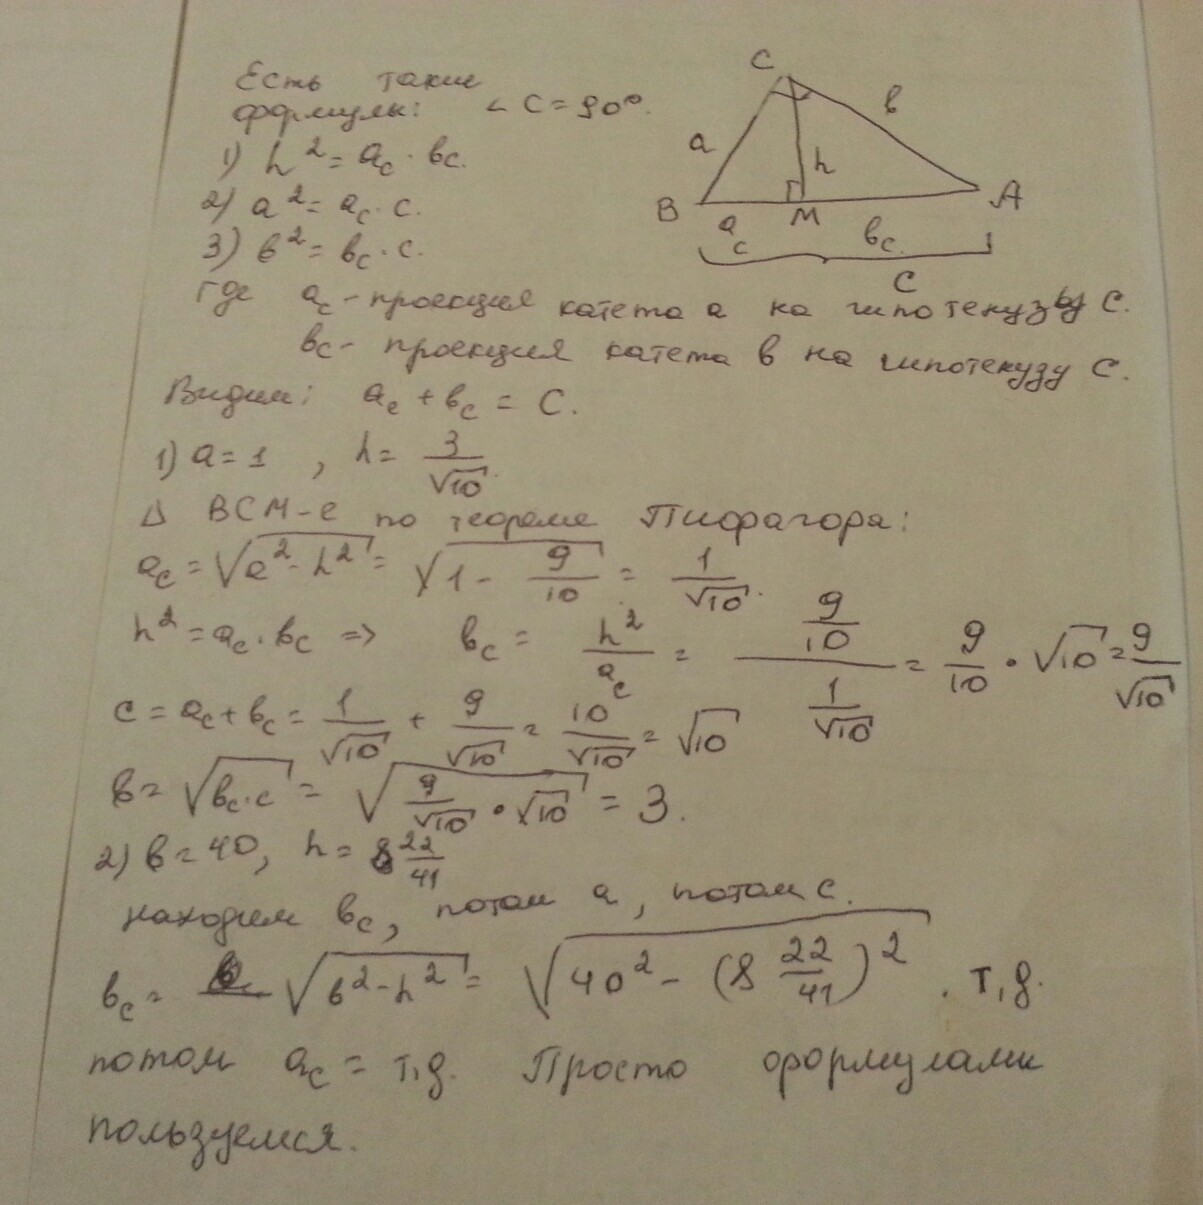 Есть такие
формулы: ∠ C = 90°.
1) h² = a_c · b_c.
2) a² = a_c · c.
3) b² = b_c · c.
C
a
b
h
B
M
A
a_c
b_c
c
где a_c - проекция катета a на гипотенузу c.
b_c - проекция катета b на гипотенузу c.
Видим: a_c + b_c = c.
1) a = 1 , h = 3/√10.
Δ BCM-е по теореме Пифагора:
a_c = √(a² - h²) = √(1 - 9/10) = 1/√10.
h² = a_c · b_c => b_c = h²/a_c = (9/10)/(1/√10) = 9/10 · √10 = 9/√10
c = a_c + b_c = 1/√10 + 9/√10 = 10/√10 = √10
b = √(b_c · c) = √(9/√10 · √10) = 3.
2) b = 40, h = 8 22/41
находим b_c, потом a, потом c.
b_c = √(b² - h²) = √(40² - (8 22/41)²) . т,д.
потом a_c = т,д. Просто формулами
пользуемся.